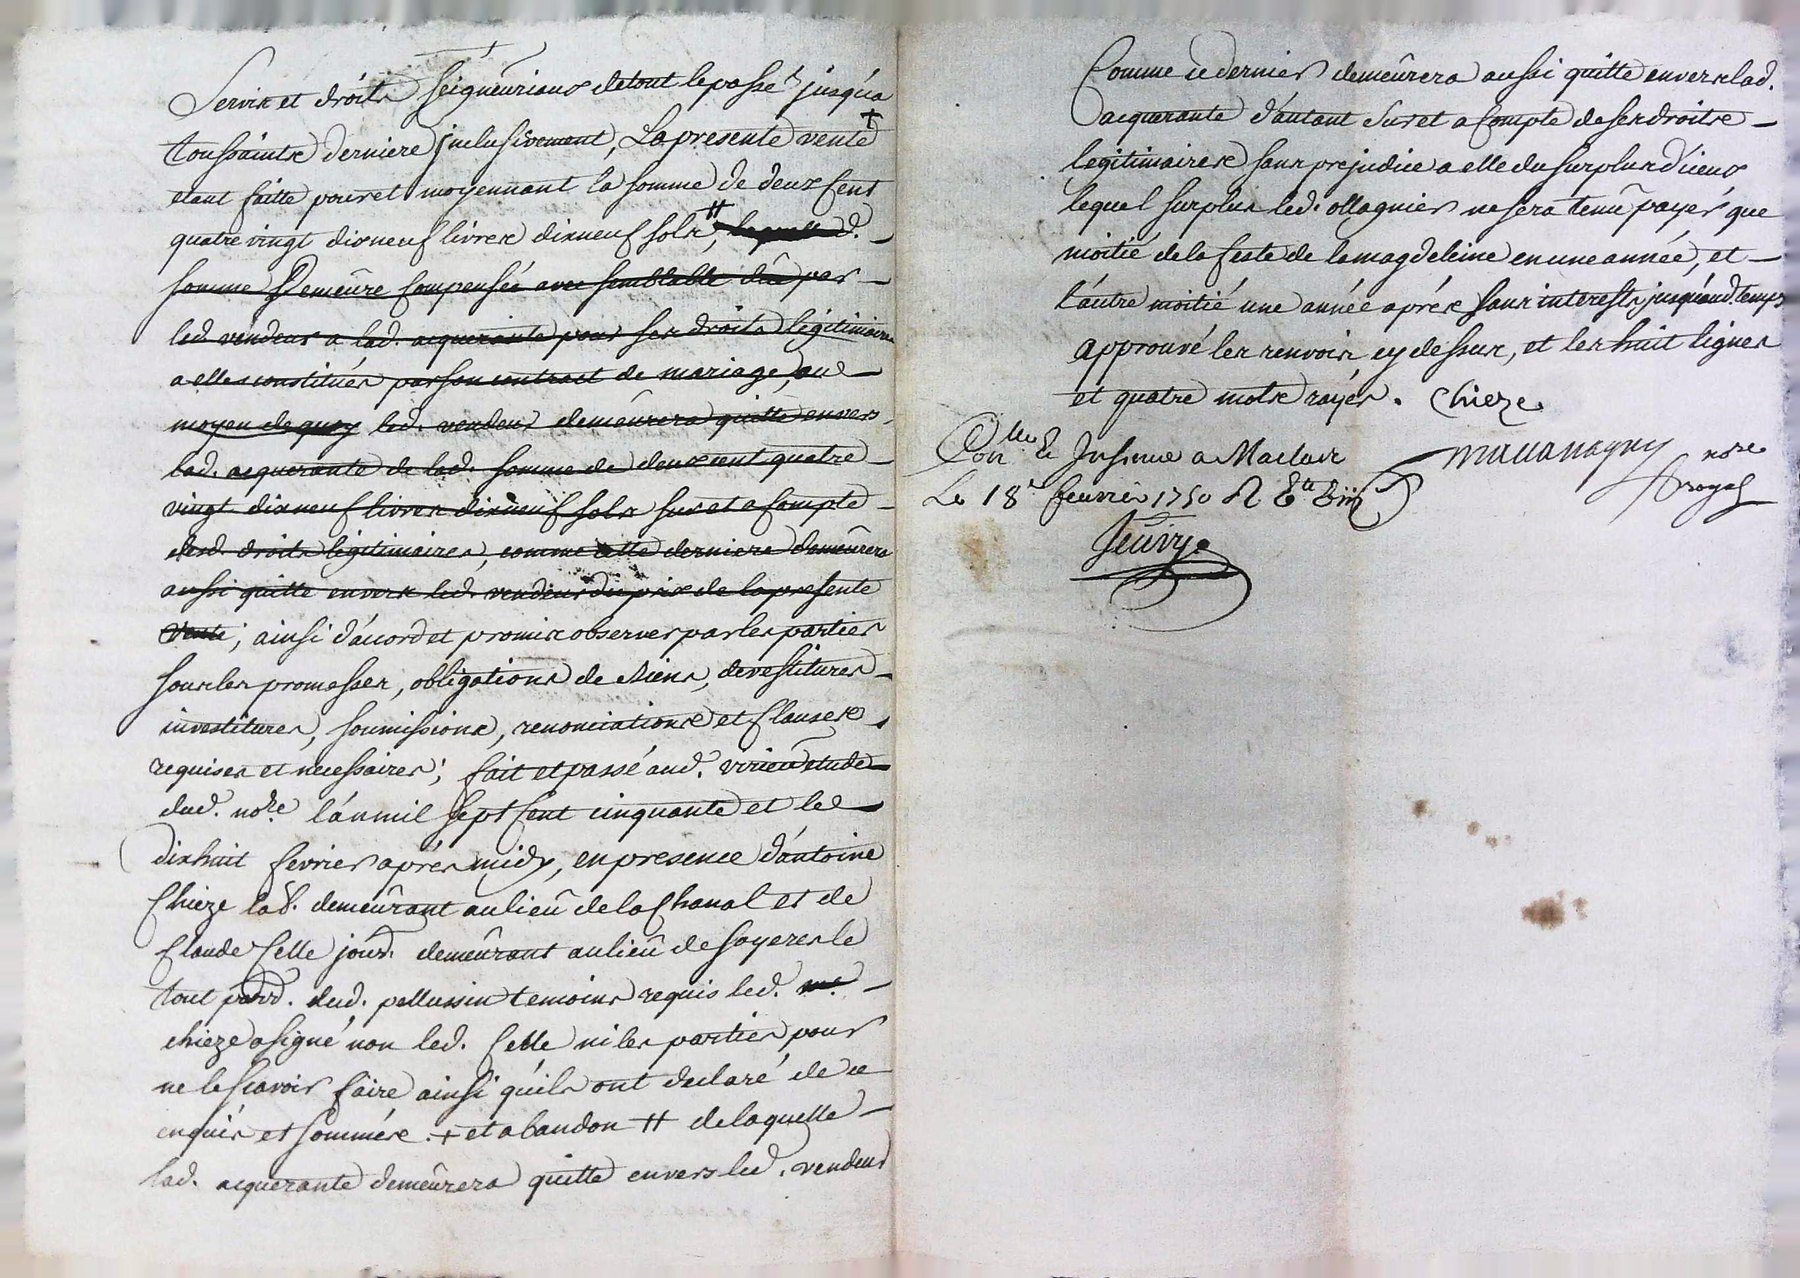 Servis et droits seigneuriaux de tout le passé jusqu'a
toussaints derniere jnclusivement, La presente vente +
etant faitte pour et moyennant la somme de deux cent
quatre vingt dixneuf livres dixneuf sols, ++ laquelle d.
somme Demeure compensée avec semblable dûe par
led. vendeur a lad. acquerante pour ses droits légitimaires
a elle constitués par son contract de mariage, au
moyen de quoy led. vendeur demeurera quitte envers
lad. acquerante de lad. somme de deux cent quatre
vingt dixneuf livres dixneuf sols sur et a compte
desd. droits légitimaires, comme cette derniere demeurera
aussi quitte envers led. vendeur du prix de la presente
vente; ainsi d'acord et promis observer par les parties
sous les promesses, obligations de biens, devestitures
investitures, soumissions, renonciations et clauses
requises et necessaires; fait et passé aud. virieu etude
dud. nore. l'an mil sept cent cinquante et le
dixhuit fevrier aprés midy, en presence d'antoine
Chieze lab. demeurant au lieu de la Chanal et de
Claude Celle jour. demeurant au lieu de soyeres le
tout parr. dud. pellussin temoins requis led. me.
chieze a signé non led. Celle ni les parties pour
ne le scavoir faire ainsi qu'ils ont declaré de ce
enquis et sommés. + et abandon ++ de laquelle
lad. acquerante demeurera quitte envers led. vendeur
Comme ce dernier demeurera aussi quitte envers lad.
acquerante d'autant sur et a Compte de ses droits
legitimaires sans prejudice a elle du surplus d'iceux
lequel surplus led. ollagnier ne sera tenu payer que
moitié de la feste de la magdeleine en une année, et
l'autre moitié une année aprés sans interests jusqu'aud. temps
approuvé les renvois cy dessus, et les huit lignes
et quatre mots rayés. Chieze
Conllé & Insinué a Maclas
Le 18e feuvrier 1750 R
nore
royal